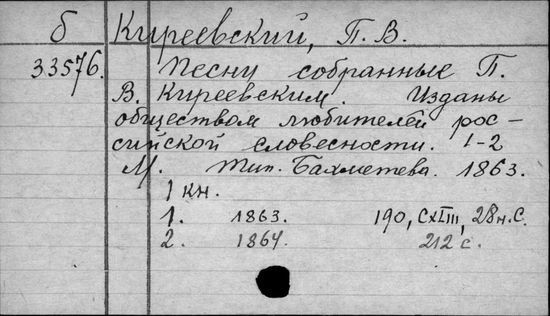 б Киреевский, П. В.
33576. Песни собранные П.
В. Киреевским. Изданы
обществом любителей рос-
сийской словесности. 1-2
М. Тип. Бахметева. 1863.
1 кн.
1. 1863. 190, CXLIII, 28 н.с.
2. 1864. 212 с.